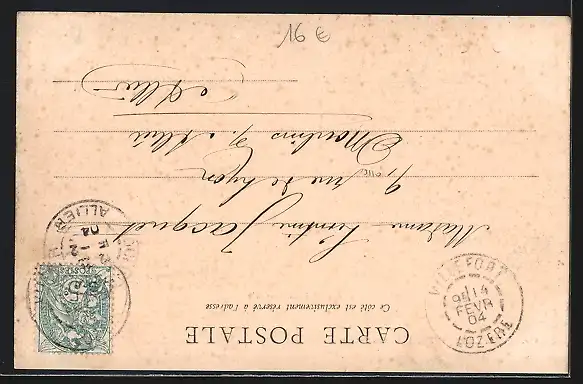 16 €
CARTE POSTALE
Ce côté est exclusivement réservé à l'adresse
Madame Jacquet
9, rue de Lyon
Moulins s/ Allier
Allier
VILLEFORT
14
FEVR
04
LOZERE
ALLIER
04